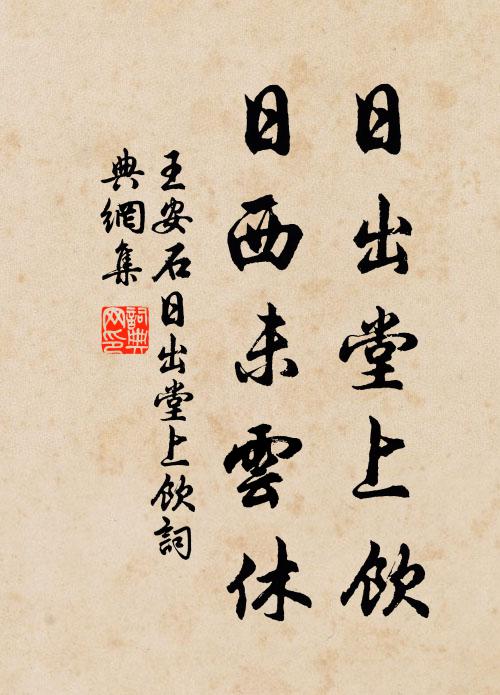 日出堂上飲
日西未雲休
王安石日出堂上飲詞
典網集
詞典
网印